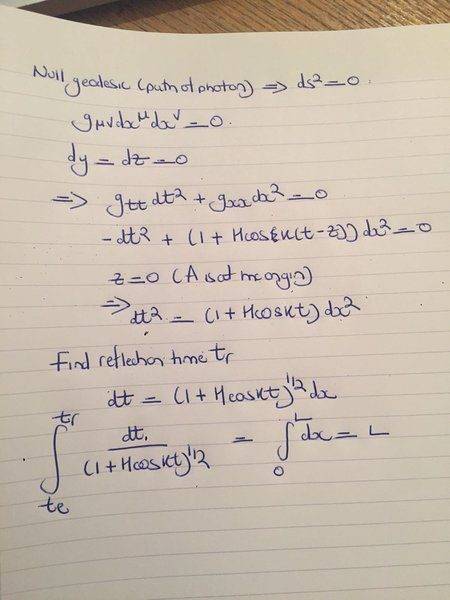 Null geodesic (path of photon) ⇒ ds² = 0.
gμν dx^μ dx^ν = 0.
dy = dz = 0
⇒ g_tt dt² + g_xx dx² = 0
-dt² + (1 + Hcos{k(t-z)}) dx² = 0
z = 0 (A is at the origin)
⇒ dt² = (1 + Hcoskt) dx²
Find reflection time tr
dt = (1 + Hcoskt)^1/2 dx
∫_te^tr dt. / (1 + Hcoskt)^1/2 = ∫_0^L dx = L